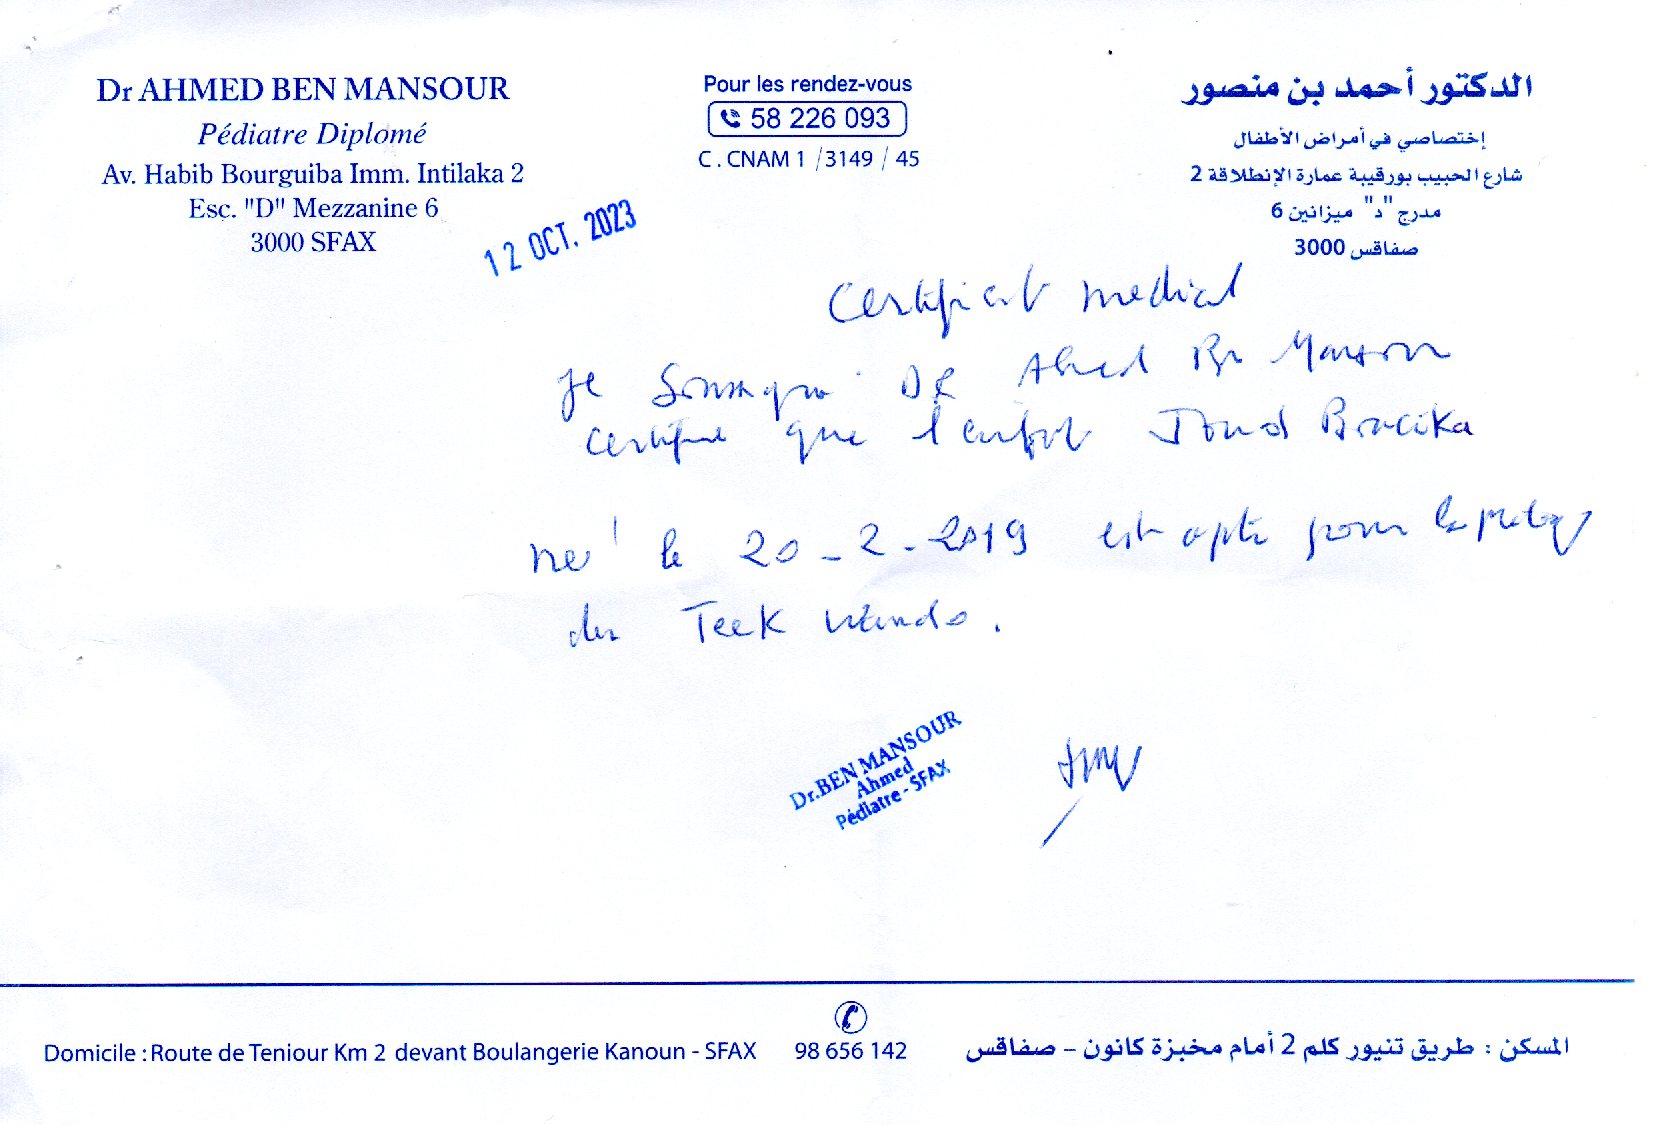 Dr AHMED BEN MANSOUR
Pédiatre Diplomé
Av. Habib Bourguiba Imm. Intilaka 2
Esc. "D" Mezzanine 6
3000 SFAX
Pour les rendez-vous
58 226 093
C . CNAM 1 /3149 / 45
الدكتور أحمد بن منصور
إختصاصي في أمراض الأطفال
شارع الحبيب بورقيبة عمارة الإنطلاقة 2
مدرج "د" ميزانين 6
صفاقس 3000
12 OCT. 2023
Certificat medical
Je Soussigné DR Ahmed Ben Mansour
certifie que l'enfant
né le 20 - 2 - 2019 est apte pour la
du Teek wendo.
Dr.BEN MANSOUR
Ahmed
Pédiatre - SFAX
Domicile : Route de Teniour Km 2 devant Boulangerie Kanoun - SFAX
98 656 142
المسكن : طريق تنيور كلم 2 أمام مخبزة كانون – صفاقس